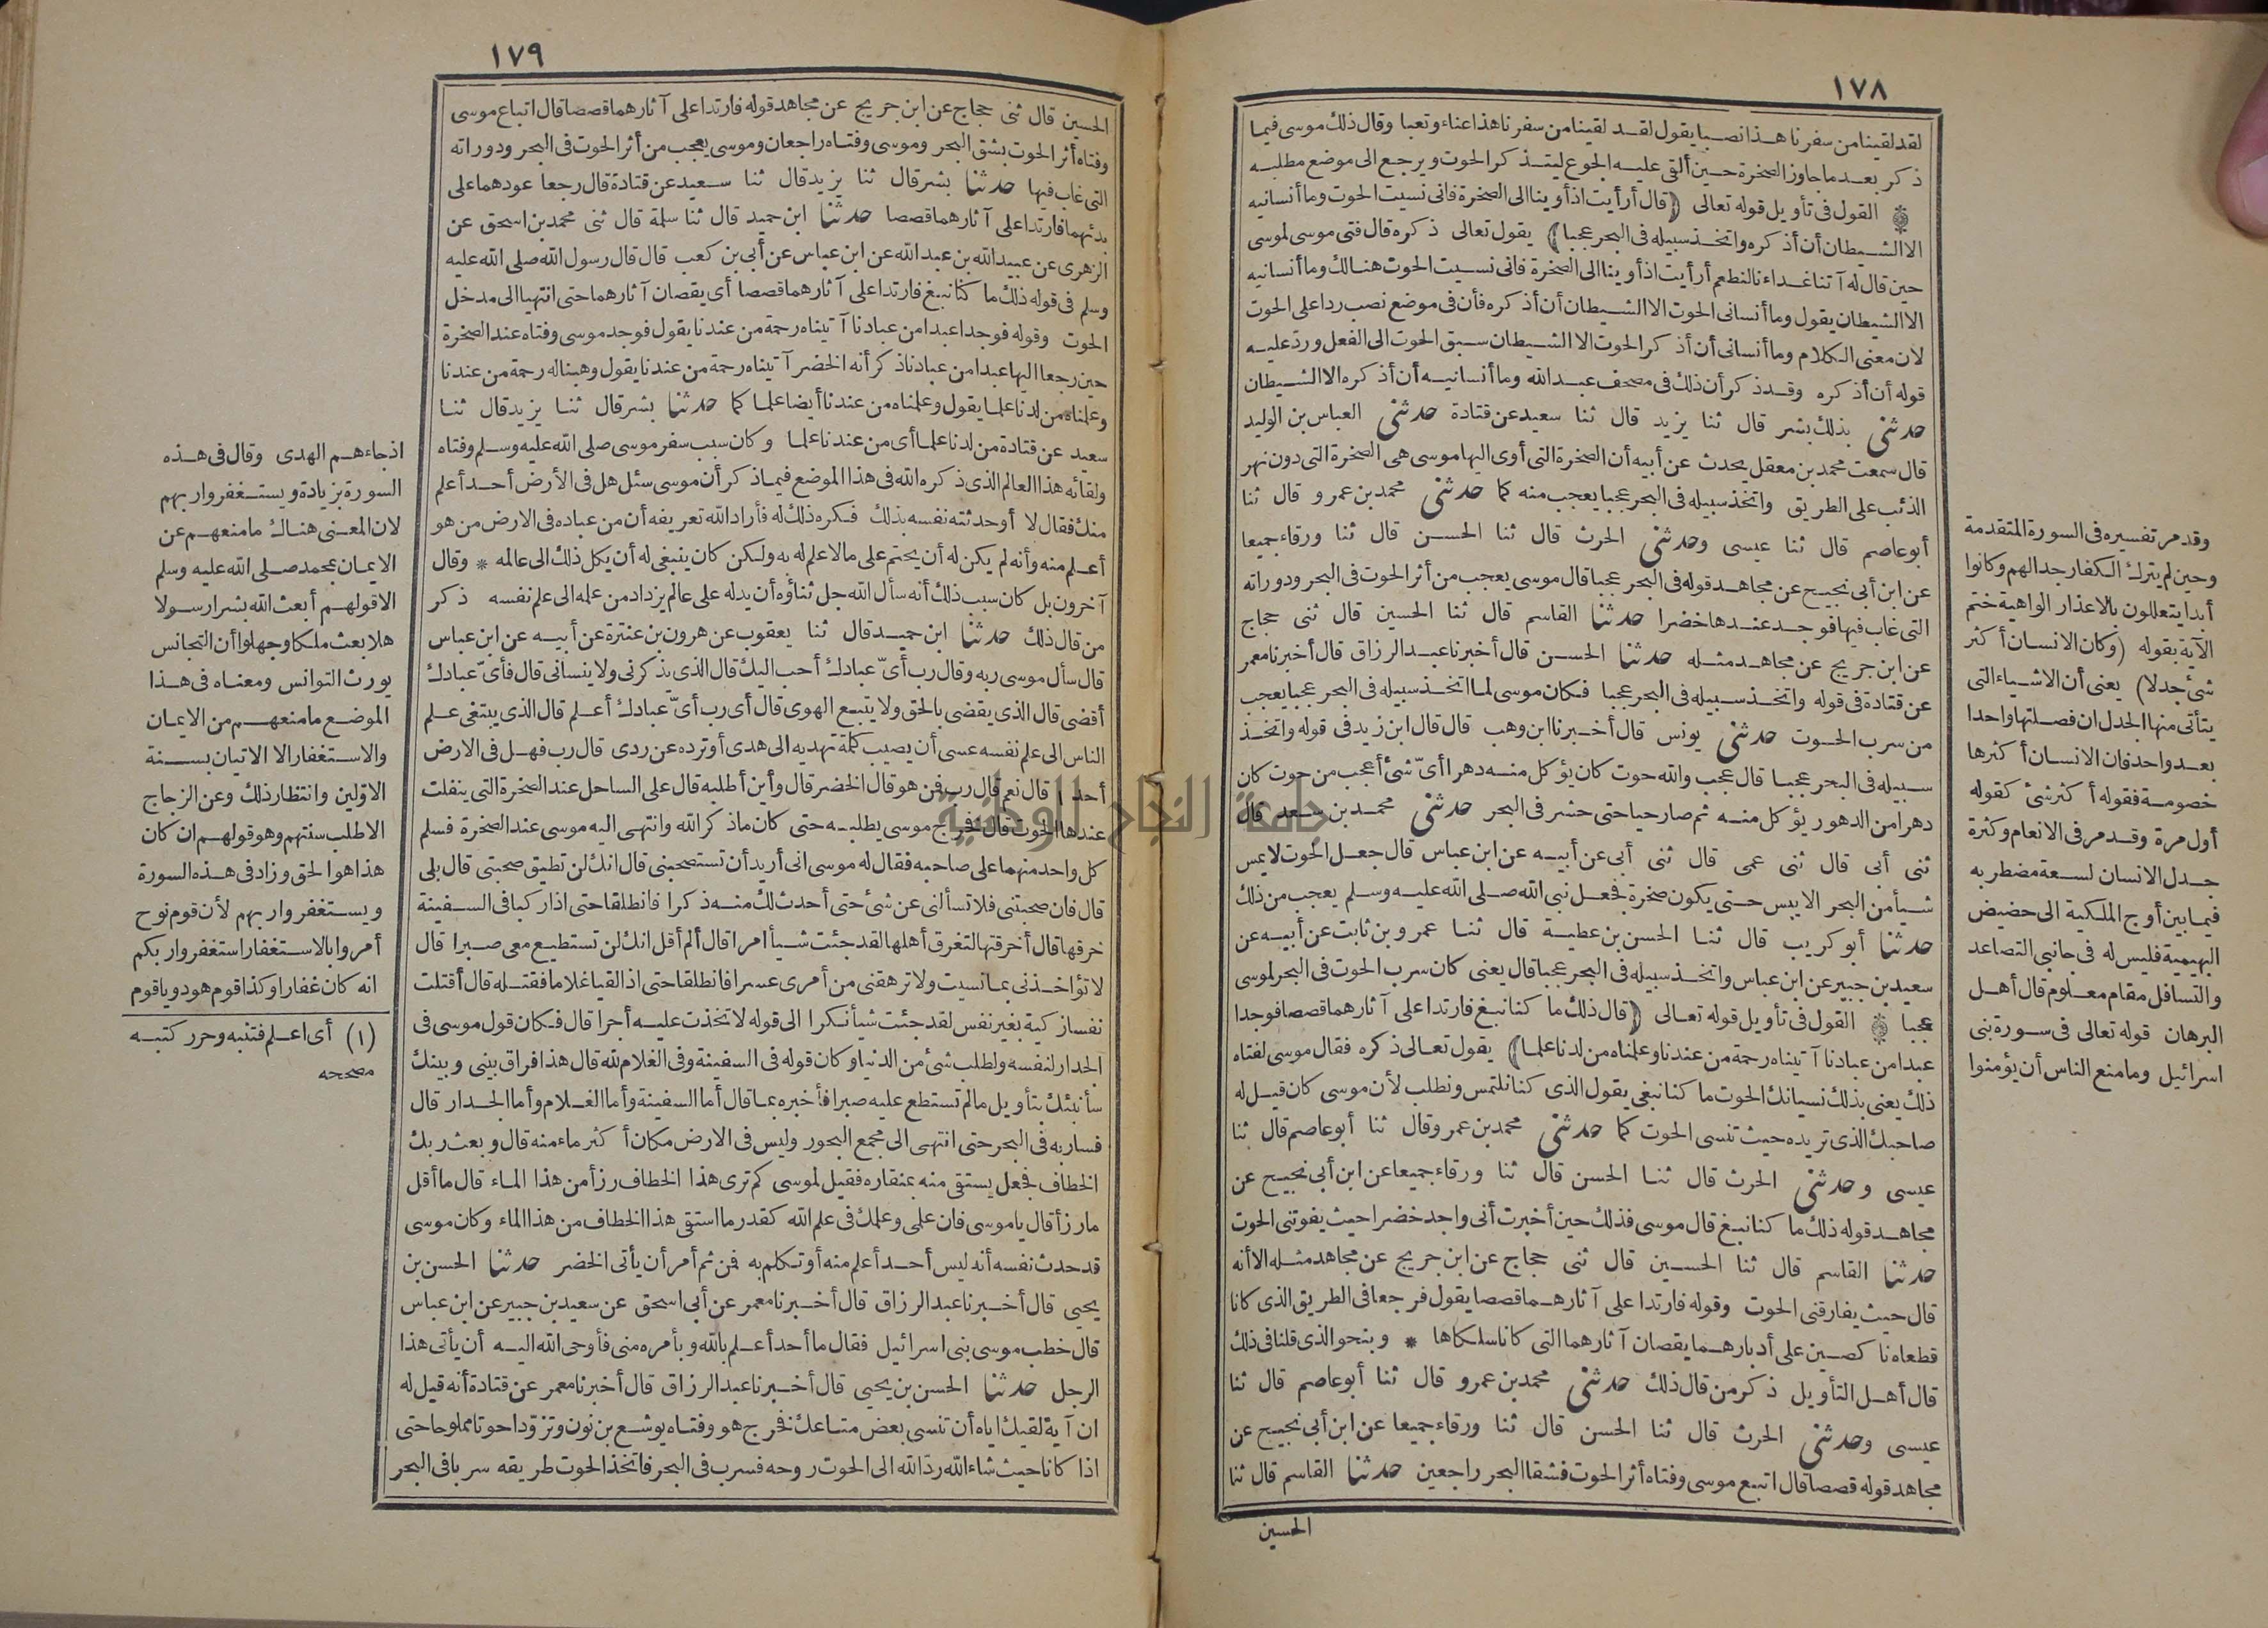 ١٧٨
لقد لقينا من سفرنا هذا نصبا يقول لقد لقينا من سفرنا هذا عناء وتعبا وقال ذلك موسى فيما
ذكر بعد ما جاوز الصخرة حين ألقى عليه الجوع ليتذكر الحوت ويرجع الى موضع مطلبه
۞ القول فى تأويل قوله تعالى ﴿قال أرأيت اذ أوينا الى الصخرة فانى نسيت الحوت وما أنسانيه
الا الشيطان أن أذكره واتخذ سبيله فى البحر عجبا﴾ يقول تعالى ذكره قال فتى موسى لموسى
حين قال له آتنا غداءنا لنطعم أرأيت اذ أوينا الى الصخرة فانى نسيت الحوت هنالك وما أنسانيه
الا الشيطان يقول وما أنسانى الحوت الا الشيطان أن أذكره فأن فى موضع نصب ردا على الحوت
لان معنى الكلام وما أنسانى أن أذكر الحوت الا الشيطان سبق الحوت الى الفعل ورد عليه
قوله أن أذكره وقد ذكر أن ذلك فى مصحف عبد الله وما أنسانيه أن أذكره الا الشيطان
حدثنى بذلك بشر قال ثنا يزيد قال ثنا سعيد عن قتادة حدثنى العباس بن الوليد
قال سمعت محمد بن معقل يحدث عن أبيه أن الصخرة التى أوى اليها موسى هى الصخرة التى دون نهر
الذئب على الطريق واتخذ سبيله فى البحر عجبا يعجب منه كما حدثنى محمد بن عمرو قال ثنا
أبو عاصم قال ثنا عيسى وحدثنى الحرث قال ثنا الحسن قال ثنا ورقاء جميعا
عن ابن أبى نجيح عن مجاهد قوله فى البحر عجبا قال موسى يعجب من أثر الحوت فى البحر ودوراته
التى غاب فيها فوجد عندها خضرا حدثنا القاسم قال ثنا الحسين قال ثنى حجاج
عن ابن جريج عن مجاهد مثله حدثنا الحسن قال أخبرنا عبد الرزاق قال أخبرنا معمر
عن قتادة فى قوله واتخذ سبيله فى البحر عجبا فكان موسى لما اتخذ سبيله فى البحر عجبا يعجب
من سرب الحوت حدثنى يونس قال أخبرنا ابن وهب قال قال ابن زيد فى قوله واتخذ
سبيله فى البحر عجبا قال عجب والله حوت كان يؤكل منه دهرا أىّ شئ أعجب من حوت كان
دهرا من الدهور يؤكل منه ثم صار حيا حتى حشر فى البحر حدثنى محمد بن سعد قال
ثنى أبى قال ثنى عمى قال ثنى أبى عن أبيه عن ابن عباس قال جعل الحوت لا يمس
شيأ من البحر الا يبس حتى يكون صخرة فجعل نبى الله صلى الله عليه وسلم يعجب من ذلك
حدثنا أبو كريب قال ثنا الحسن بن عطية قال ثنا عمرو بن ثابت عن أبيه عن
سعيد بن جبير عن ابن عباس واتخذ سبيله فى البحر عجبا قال يعنى كان سرب الحوت فى البحر لموسى
عجبا ۞ القول فى تأويل قوله تعالى ﴿قال ذلك ما كنا نبغ فارتدا على آثارهما قصصا فوجدا
عبدا من عبادنا آتيناه رحمة من عندنا وعلمناه من لدنا علما﴾ يقول تعالى ذكره فقال موسى لفتاه
ذلك يعنى بذلك نسيانك الحوت ما كنا نبغى يقول الذى كنا نلتمس ونطلب لأن موسى كان قيل له
صاحبك الذى تريده حيث تنسى الحوت كما حدثنى محمد بن عمرو قال ثنا أبو عاصم قال ثنا
عيسى وحدثنى الحرث قال ثنا الحسن قال ثنا ورقاء جميعا عن ابن أبى نجيح عن
مجاهد قوله ذلك ما كنا نبغ قال موسى فذلك حين أخبرت أنى واجد خضرا حيث يفوتنى الحوت
حدثنا القاسم قال ثنا الحسين قال ثنى حجاج عن ابن جريج عن مجاهد مثله الا أنه
قال حيث يفارقنى الحوت وقوله فارتدا على آثارهما قصصا يقول فرجعا فى الطريق الذى كانا
قطعاه ناكصين على أدبارهما يقصان آثارهما التى كانا سلكاها * وبنحو الذى قلنا فى ذلك
قال أهل التأويل ذكر من قال ذلك حدثنى محمد بن عمرو قال ثنا أبو عاصم قال ثنا
عيسى وحدثنى الحرث قال ثنا الحسن قال ثنا ورقاء جميعا عن ابن أبى نجيح عن
مجاهد قوله قصصا قال اتبع موسى وفتاه أثر الحوت فشقا البحر راجعين حدثنا القاسم قال ثنا
الحسين
وقد مر تفسيره فى السورة المتقدمة
وحين لم يترك الكفار جدالهم وكانوا
أبدا يتعللون بالاعذار الواهية ختم
الآية بقوله (وكان الانسان أكثر
شئ جدلا) يعنى أن الاشياء التى
يتأتى منها الجدل ان فصلتها واحدا
بعد واحد فان الانسان أكثرها
خصومة فقوله أكثر شئ كقوله
أول مرة وقد مر فى الانعام وكثرة
جدل الانسان لسعة مضطربه
فيما بين أوج الملكية الى حضيض
البهيمية فليس له فى جانبى التصاعد
والتسافل مقام معلوم قال أهل
البرهان قوله تعالى فى سورة بنى
اسرائيل وما منع الناس أن يؤمنوا
١٧٩
الحسين قال ثنى حجاج عن ابن جريج عن مجاهد قوله فارتدا على آثارهما قصصا قال اتباع موسى
وفتاه أثر الحوت بشق البحر وموسى وفتاه راجعان وموسى يعجب من أثر الحوت فى البحر ودوراته
التى غاب فيها حدثنا بشر قال ثنا يزيد قال ثنا سعيد عن قتادة قال رجعا عودهما على
بدئهما فارتدا على آثارهما قصصا حدثنا ابن حميد قال ثنا سلمة قال ثنى محمد بن اسحق عن
الزهرى عن عبيد الله بن عبد الله عن ابن عباس عن أبى بن كعب قال قال رسول الله صلى الله عليه
وسلم فى قوله ذلك ما كنا نبغ فارتدا على آثارهما قصصا أى يقصان آثارهما حتى انتهيا الى مدخل
الحوت وقوله فوجدا عبدا من عبادنا آتيناه رحمة من عندنا يقول فوجد موسى وفتاه عند الصخرة
حين رجعا اليها عبدا من عبادنا ذكر أنه الخضر آتيناه رحمة من عندنا يقول وهبنا له رحمة من عندنا
وعلمناه من لدنا علما يقول وعلمناه من عندنا أيضا علما كما حدثنا بشر قال ثنا يزيد قال ثنا
سعيد عن قتادة من لدنا علما أى من عندنا علما وكان سبب سفر موسى صلى الله عليه وسلم وفتاه
ولقائه هذا العالم الذى ذكره الله فى هذا الموضع فيما ذكر أن موسى سئل هل فى الأرض أحد أعلم
منك فقال لا أو حدثته نفسه بذلك فكره ذلك له فأراد الله تعريفه أن من عباده فى الارض من هو
أعلم منه وأنه لم يكن له أن يحتم على ما لا علم له به ولكن كان ينبغى له أن يكل ذلك الى عالمه * وقال
آخرون بل كان سبب ذلك أنه سأل الله جل ثناؤه أن يدله على عالم يزداد من علمه الى علم نفسه ذكر
من قال ذلك حدثنا ابن حميد قال ثنا يعقوب عن هرون بن عنترة عن أبيه عن ابن عباس
قال سأل موسى ربه وقال رب أىّ عبادك أحب اليك قال الذى يذكرنى ولا ينسانى قال فأىّ عبادك
أقضى قال الذى يقضى بالحق ولا يتبع الهوى قال أى رب أىّ عبادك أعلم قال الذى يبتغى علم
الناس الى علم نفسه عسى أن يصيب كلمة تهديه الى هدى أو ترده عن ردى قال رب فهل فى الارض
أحد ١ قال نعم قال رب فمن هو قال الخضر قال وأين أطلبه قال على الساحل عند الصخرة التى ينفلت
عندها الحوت قال فخرج موسى يطلبه حتى كان ما ذكر الله وانتهى اليه موسى عند الصخرة فسلم
كل واحد منهما على صاحبه فقال له موسى انى أريد أن تستصحبنى قال انك لن تطيق صحبتى قال بلى
قال فان صحبتنى فلا تسألنى عن شئ حتى أحدث لك منه ذكرا فانطلقا حتى اذا ركبا فى السفينة
خرقها قال أخرقتها لتغرق أهلها لقد جئت شيأ امرا قال ألم أقل انك لن تستطيع معى صبرا قال
لا تؤاخذنى بما نسيت ولا ترهقنى من أمرى عسرا فانطلقا حتى اذا لقيا غلاما فقتله قال أقتلت
نفسا زكية بغير نفس لقد جئت شيأ نكرا الى قوله لاتخذت عليه أجرا قال فكان قول موسى فى
الجدار لنفسه ولطلب شئ من الدنيا وكان قوله فى السفينة وفى الغلام لله قال هذا فراق بينى وبينك
سأنبئك بتأويل ما لم تستطع عليه صبرا فأخبره بما قال أما السفينة وأما الغلام وأما الجدار قال
فسار به فى البحر حتى انتهى الى مجمع البحور وليس فى الارض مكان أكثر ماء منه قال وبعث ربك
الخطاف فجعل يستقى منه بمنقاره فقيل لموسى كم ترى هذا الخطاف رزأ من هذا الماء قال ما أقل
ما رزأ قال يا موسى فان علمى وعلمك فى علم الله كقدر ما استقى هذا الخطاف من هذا الماء وكان موسى
قد حدث نفسه أنه ليس أحد أعلم منه أو تكلم به فمن ثم أمر أن يأتى الخضر حدثنا الحسن بن
يحيى قال أخبرنا عبد الرزاق قال أخبرنا معمر عن أبى اسحق عن سعيد بن جبير عن ابن عباس
قال خطب موسى بنى اسرائيل فقال ما أحد أعلم بالله وبأمره منى فأوحى الله اليه أن يأتى هذا
الرجل حدثنا الحسن بن يحيى قال أخبرنا عبد الرزاق قال أخبرنا معمر عن قتادة أنه قيل له
ان آية لقيك اياه أن تنسى بعض متاعك فخرج هو وفتاه يوشع بن نون وتزودا حوتا مملوحا حتى
اذا كانا حيث شاء الله رد الله الى الحوت روحه فسرب فى البحر فاتخذ الحوت طريقه سربا فى البحر
اذ جاءهم الهدى وقال فى هذه
السورة بزيادة ويستغفروا ربهم
لان المعنى هناك ما منعهم عن
الايمان بمحمد صلى الله عليه وسلم
الا قولهم أبعث الله بشرا رسولا
هلا بعث ملكا وجهلوا أن التجانس
يورث التوانس ومعناه فى هذا
الموضع ما منعهم من الايمان
والاستغفار الا الاتيان بسنة
الاولين وانتظار ذلك وعن الزجاج
الا طلب سنتهم وهو قولهم ان كان
هذا هو الحق وزاد فى هذه السورة
ويستغفروا ربهم لأن قوم نوح
أمروا بالاستغفار استغفروا ربكم
انه كان غفارا وكذا قوم هود ويا قوم
(١) أى اعلم فتنبه وحرر كتبه
مصححه
جامعة النجاح الوطنية